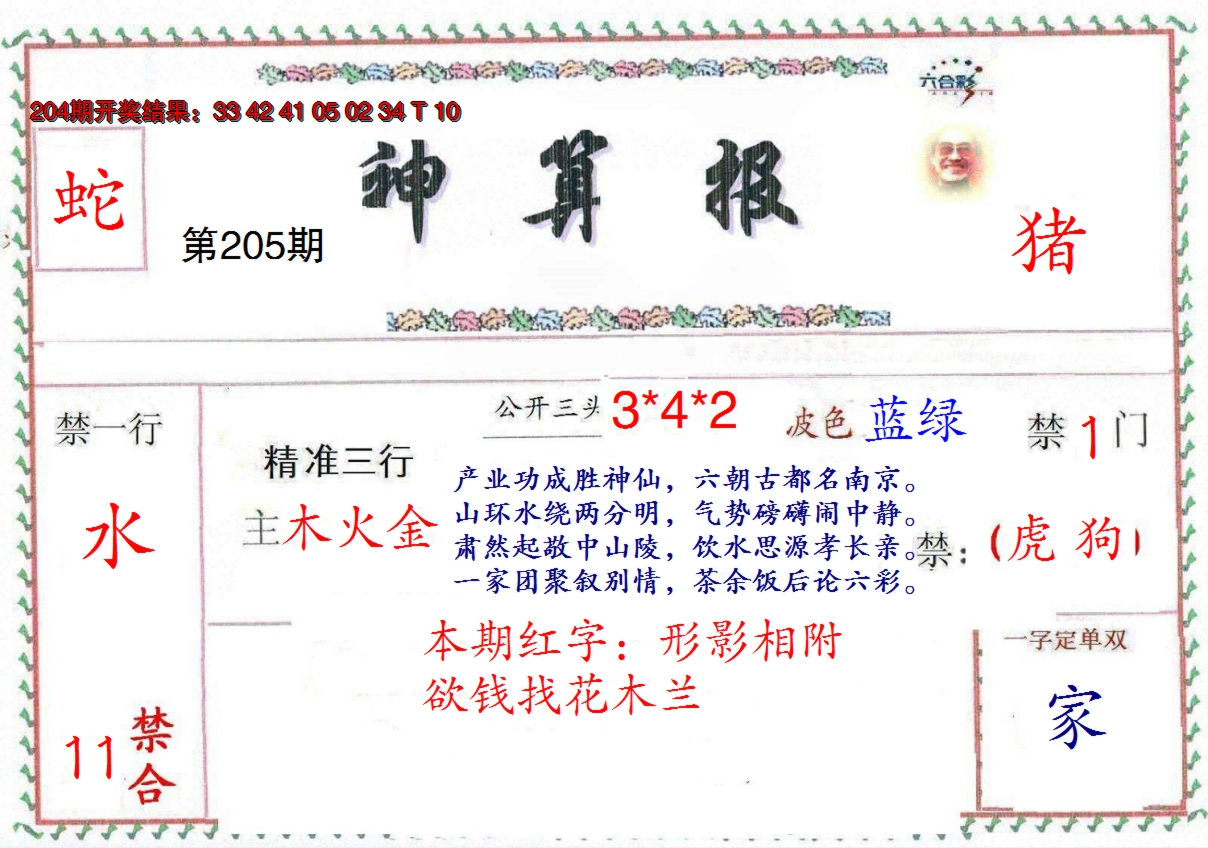 六合彩
204期开奖结果：33 42 41 05 02 34 T 10
神算报
蛇
第205期
猪
禁一行
水
11
禁合
精准三行
主木火金
公开三头 3*4*2
波色 蓝绿
禁1门
产业功成胜神仙，六朝古都名南京。
山环水绕两分明，气势磅礴闹中静。
肃然起敬中山陵，饮水思源孝长亲。
一家团聚叙别情，茶余饭后论六彩。
禁：（虎 狗）
本期红字：形影相附
欲钱找花木兰
一字定单双
家